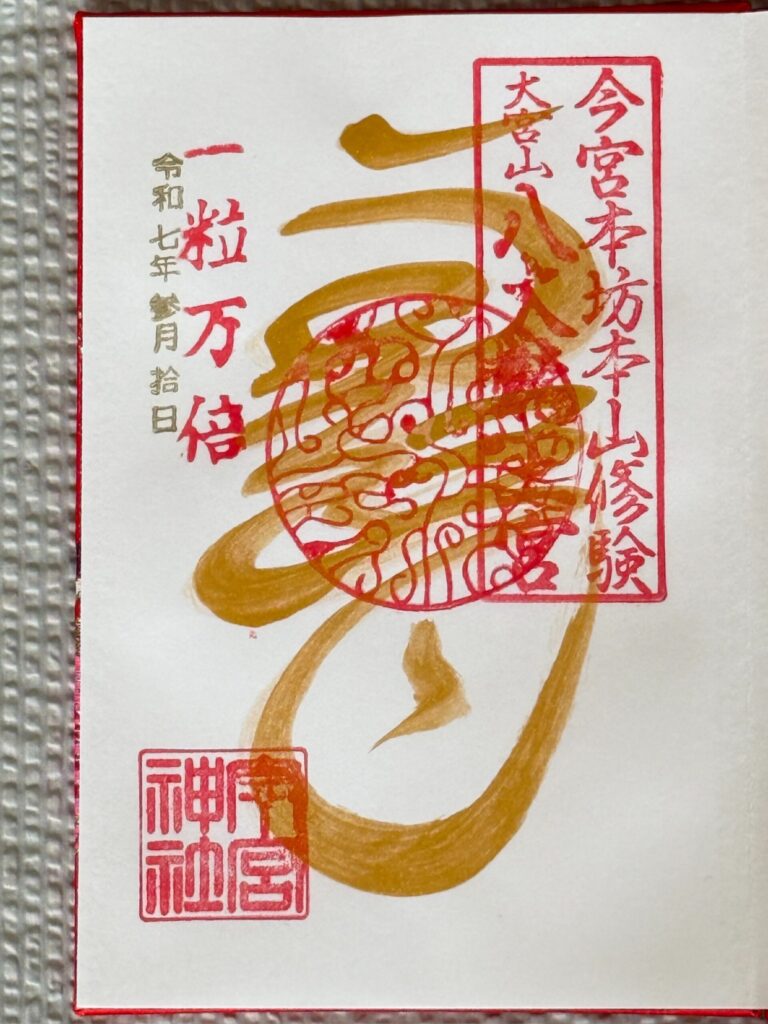 今宮本坊本山修験
大宮山八大龍王宮
壽
一粒万倍
令和七年参月拾日
今宮神社